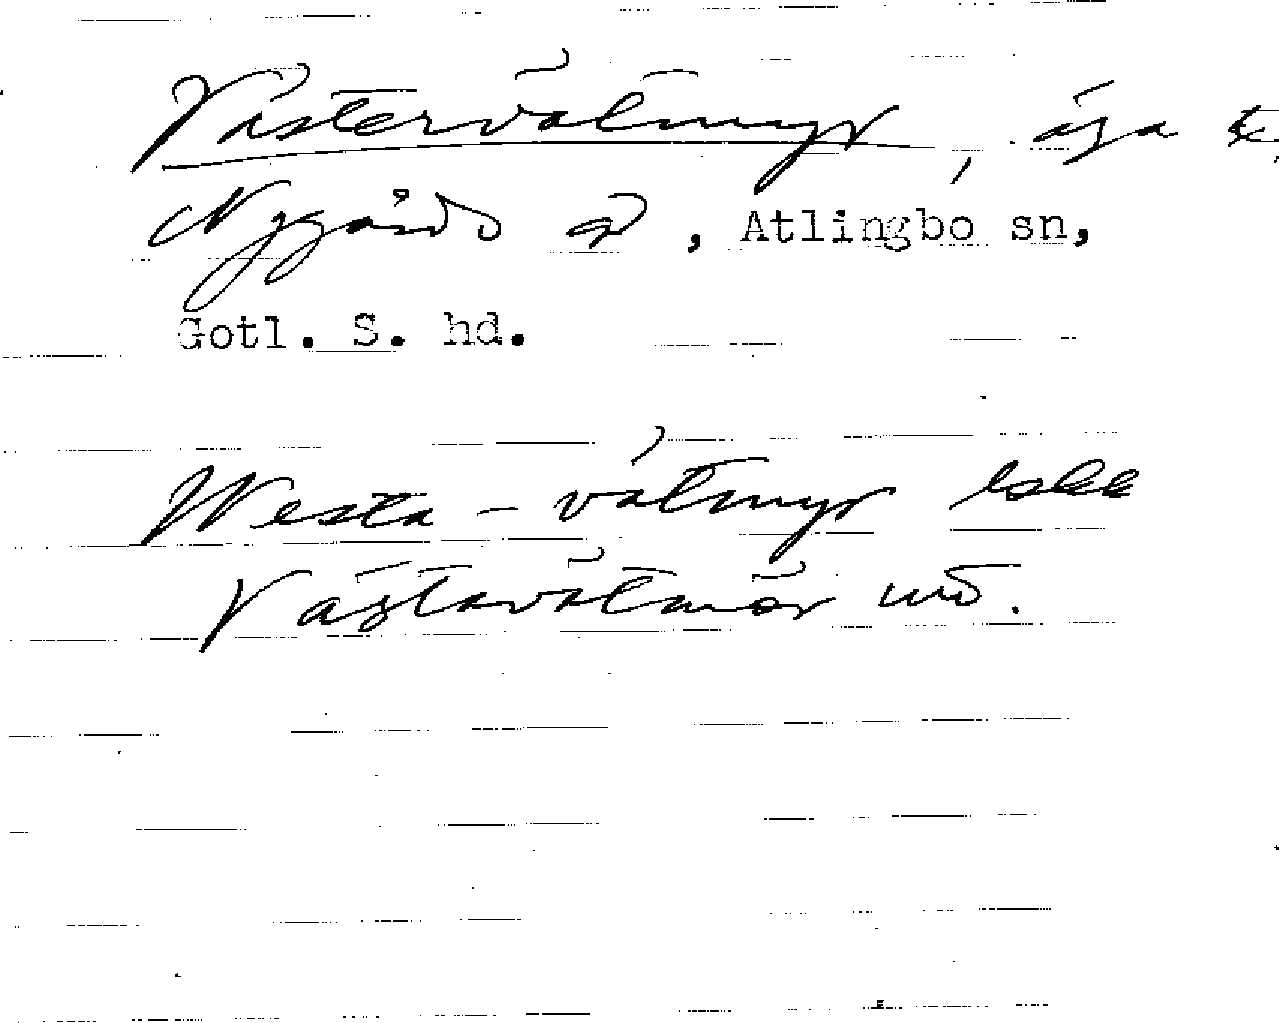 Västervätmyr, äga t.
Nygårds gd, Atlingbo sn,
Gotl. S. hd.
Westa-vätmyr lskk
Västavätmör uu.